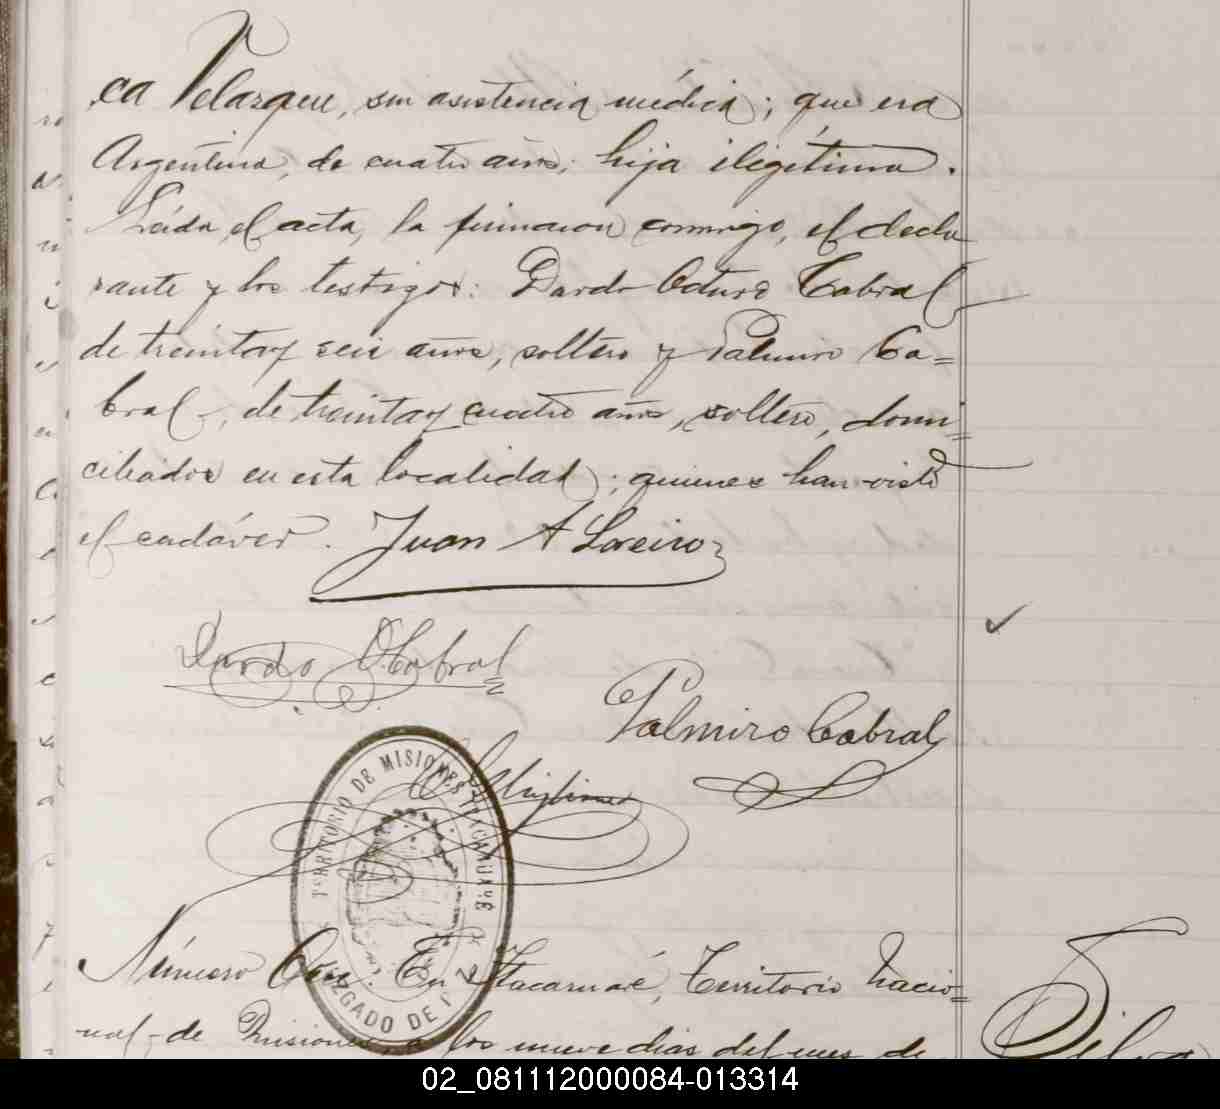 ca Velazquez, sin asistencia médica; que era
Argentina, de cuatro años; hija ilegítima.
Leída el acta, la firmaron conmigo, el decla
rante y los testigos: Dardo Oturo Cabral
de treinta y seis años, soltero y Palmiro Ca=
bral, de treinta y cuatro años, soltero, domi=
ciliados en esta localidad; quienes han visto
el cadáver. Juan A Loreiro
Dardo O Cabral
Palmiro Cabral
TERRITORIO DE MISIONES ITACARUARÉ
JUZGADO DE PAZ
Número Once. En Itacaruaré, Territorio Nacio=
nal de Misiones, a los nueve dias del mes de
Silva
02_081112000084-013314